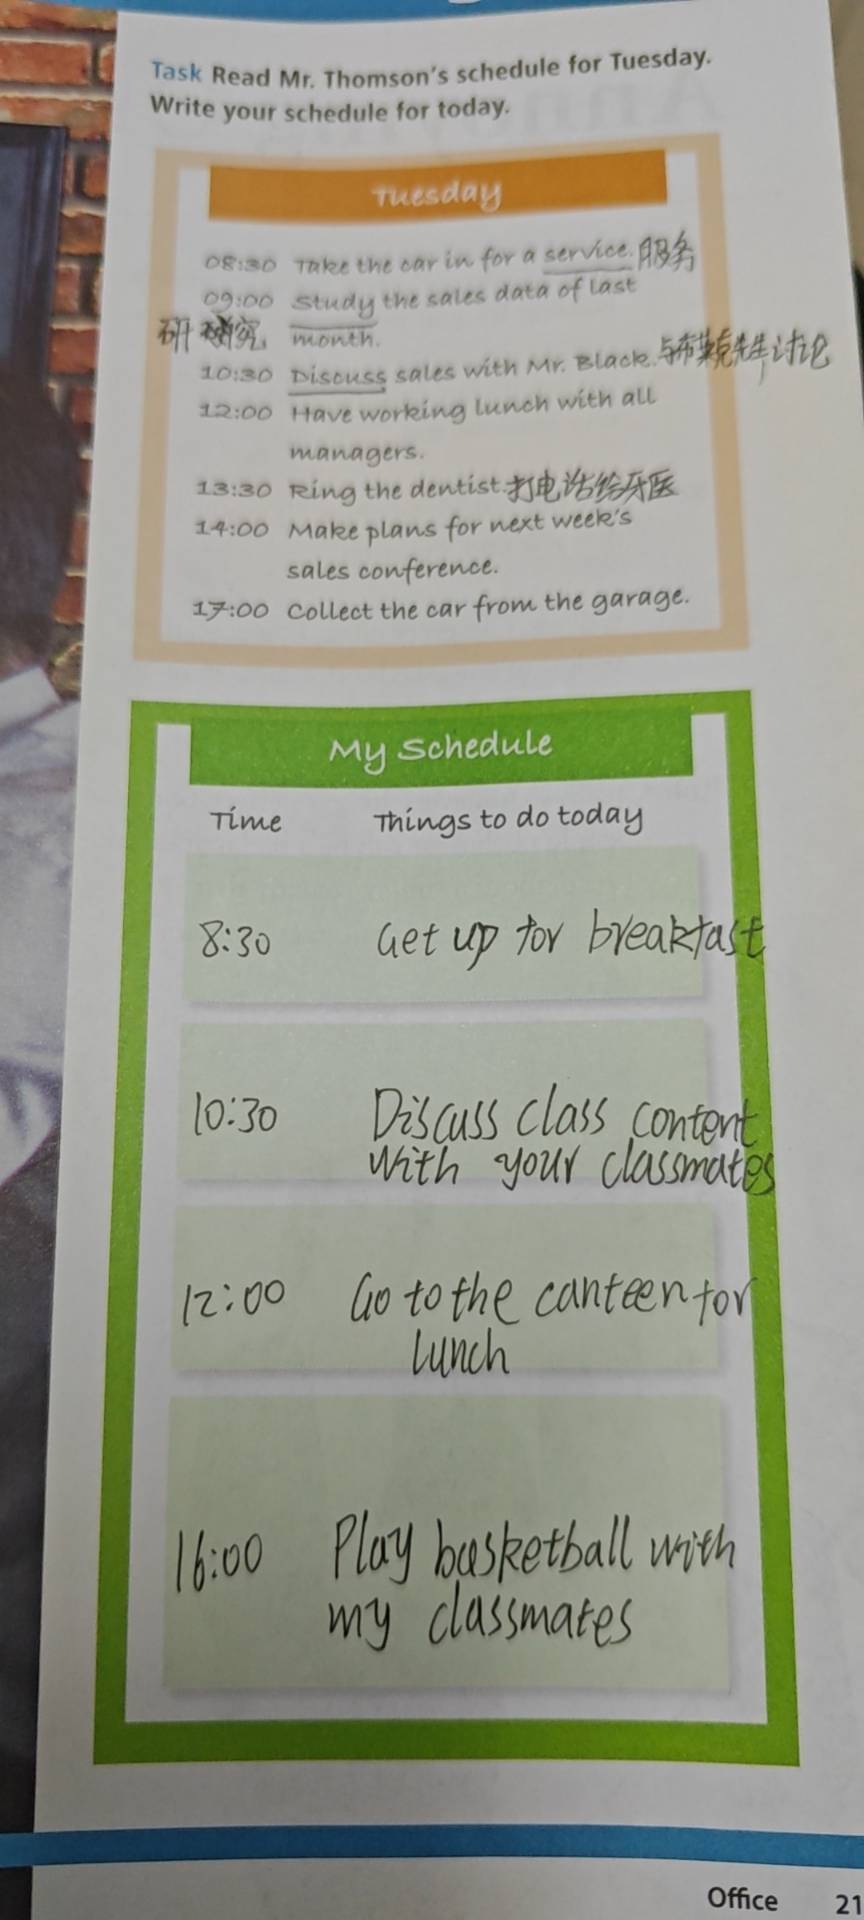 Task Read Mr. Thomson's schedule for Tuesday.
Write your schedule for today.
Tuesday
08:30 Take the car in for a service. 服务
09:00 Study the sales data of last
研究 month.
10:30 Discuss sales with Mr. Black. 与布莱克先生讨论
12:00 Have working lunch with all
managers.
13:30 Ring the dentist. 打电话给牙医
14:00 Make plans for next week's
sales conference.
17:00 Collect the car from the garage.
My Schedule
Time Things to do today
8:30 Get up for breakfast
10:30 Discuss class content
with your classmates
12:00 Go to the canteen for
lunch
16:00 Play basketball with
my classmates
Office 21